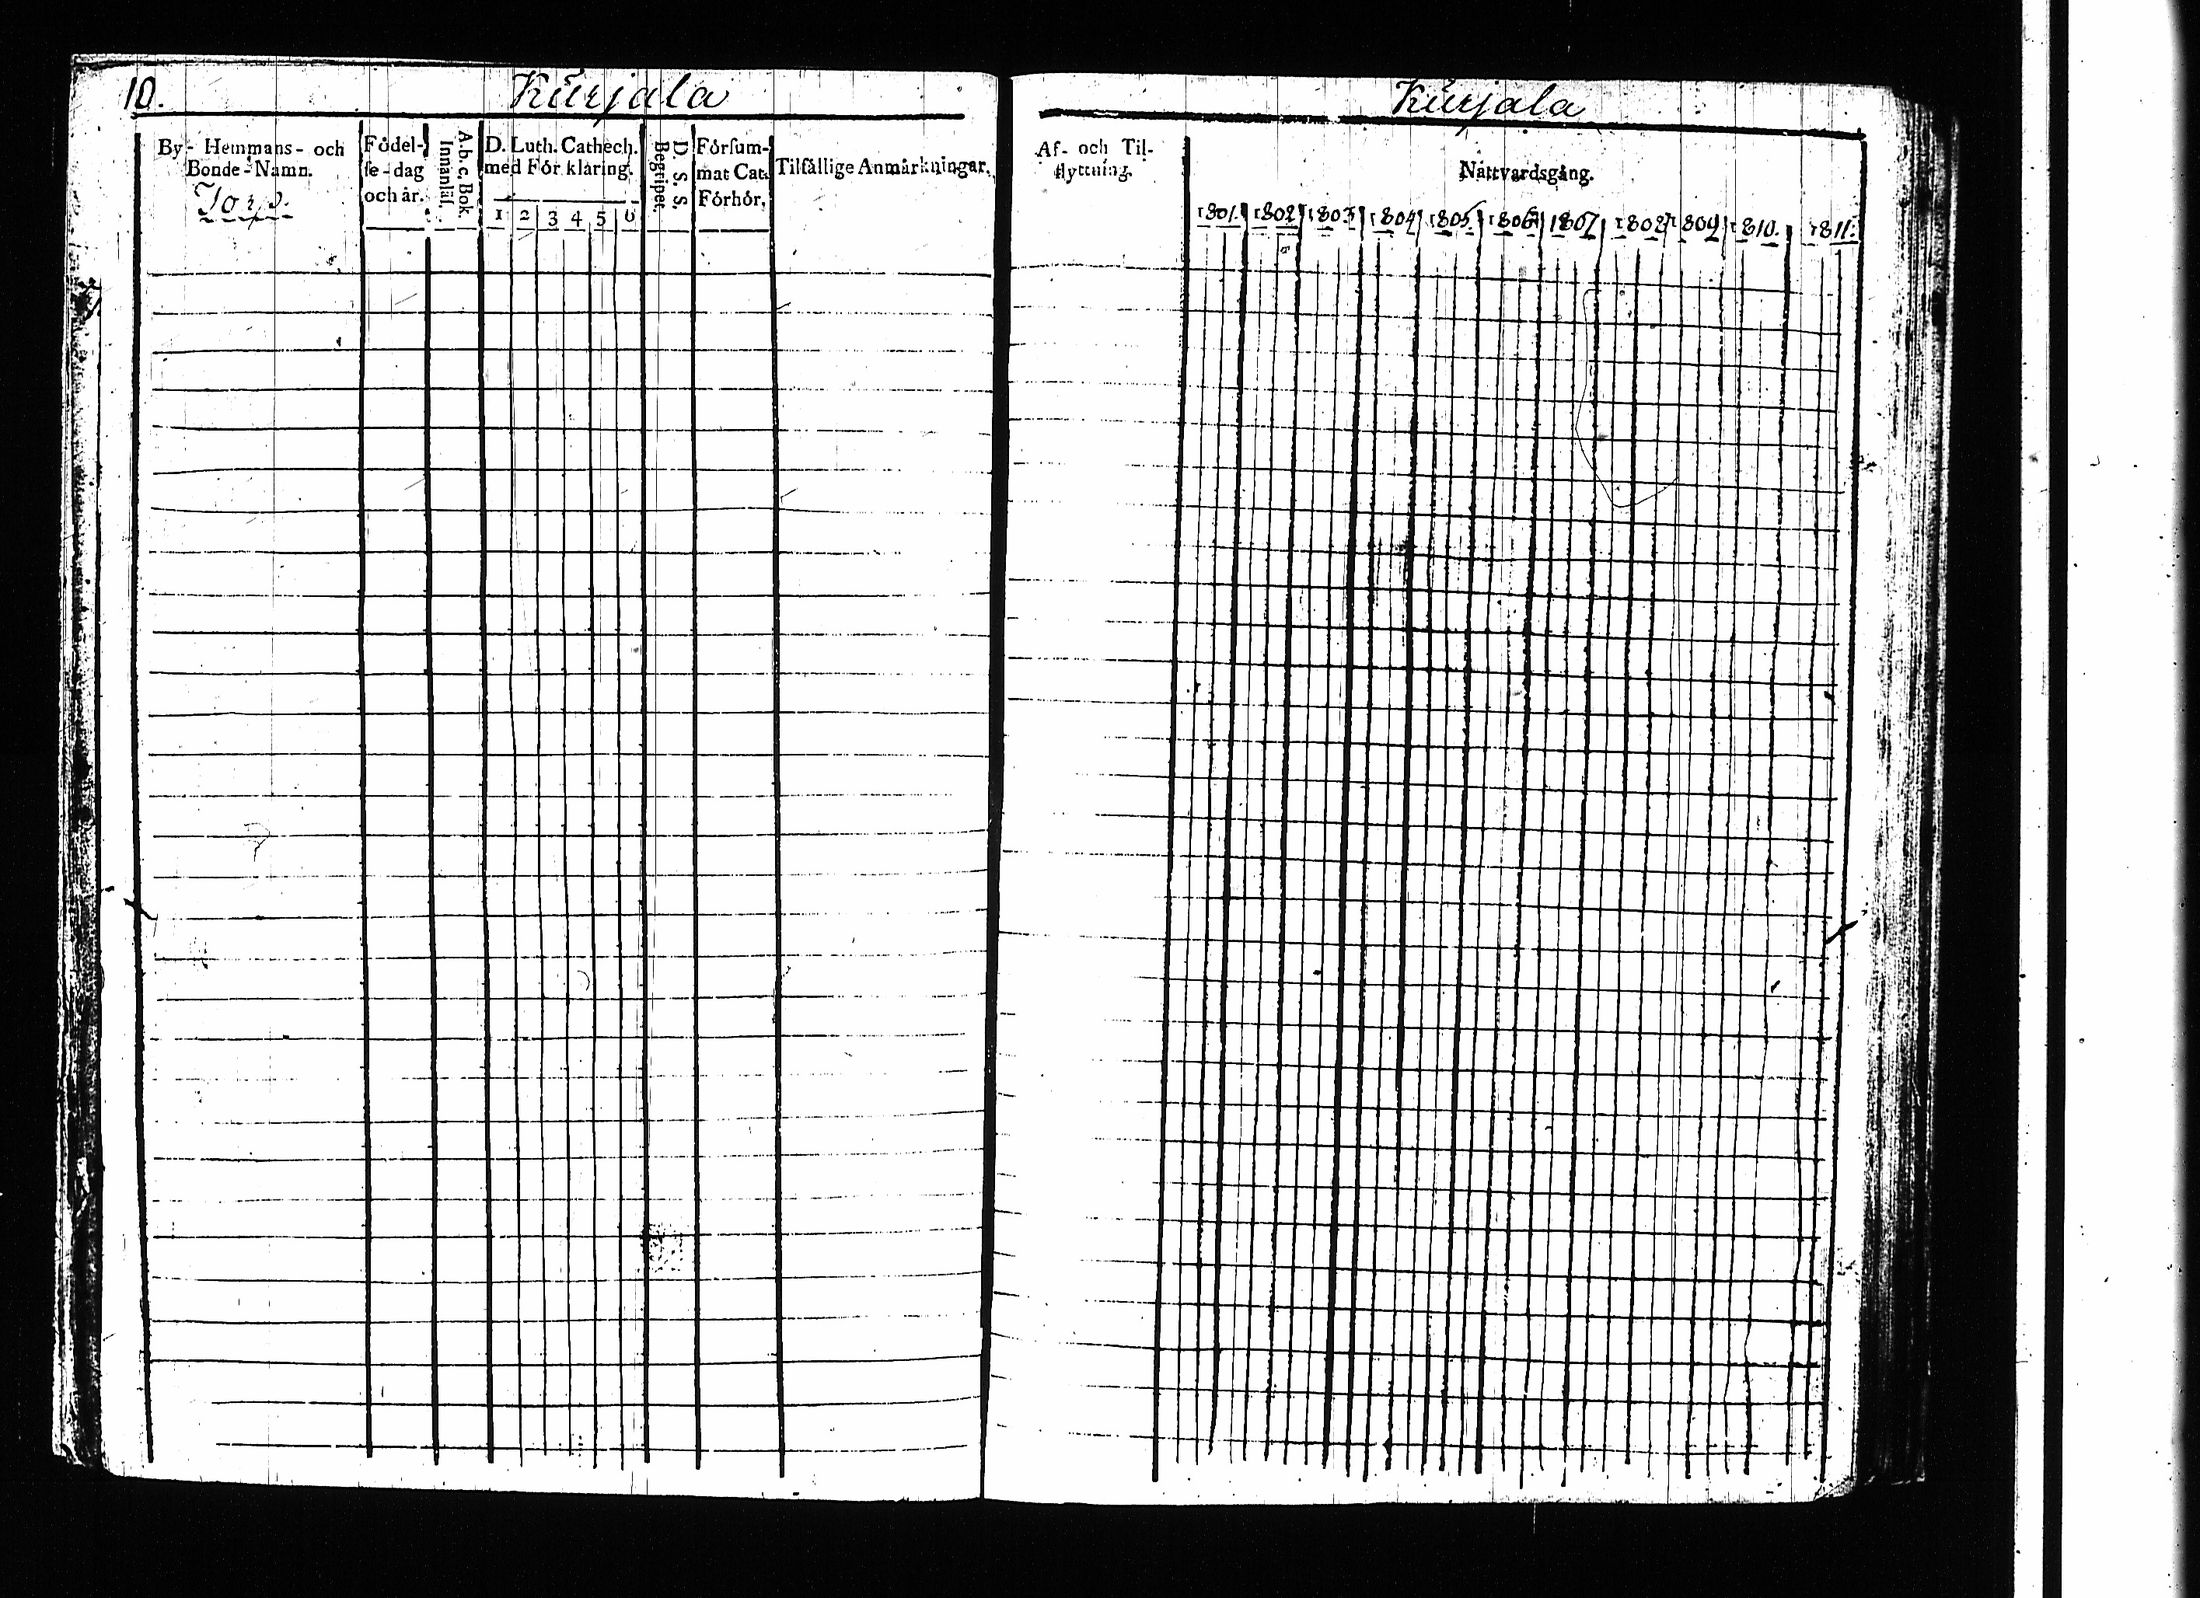 10.
Kurjala
By- Hemmans- och
Bonde-Namn.
Torp.
Födel-
se-dag
och år.
A. b. c. Bok.
Innanläs.
D. Luth. Cathech.
med För klaring.
1 2 3 4 5 6
D. S. S.
Begripet.
Försum-
mat Cat.
Förhör.
Tilfällige Anmärkningar.
Kurjala
Af- och Til-
flyttning.
Nattvardsgång.
1801. 1802 1803 1804 1805 1806 1807 1808 1809 1810. 1811.